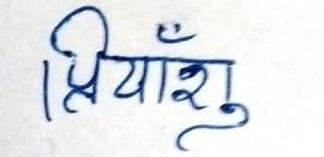 प्रियाँशु